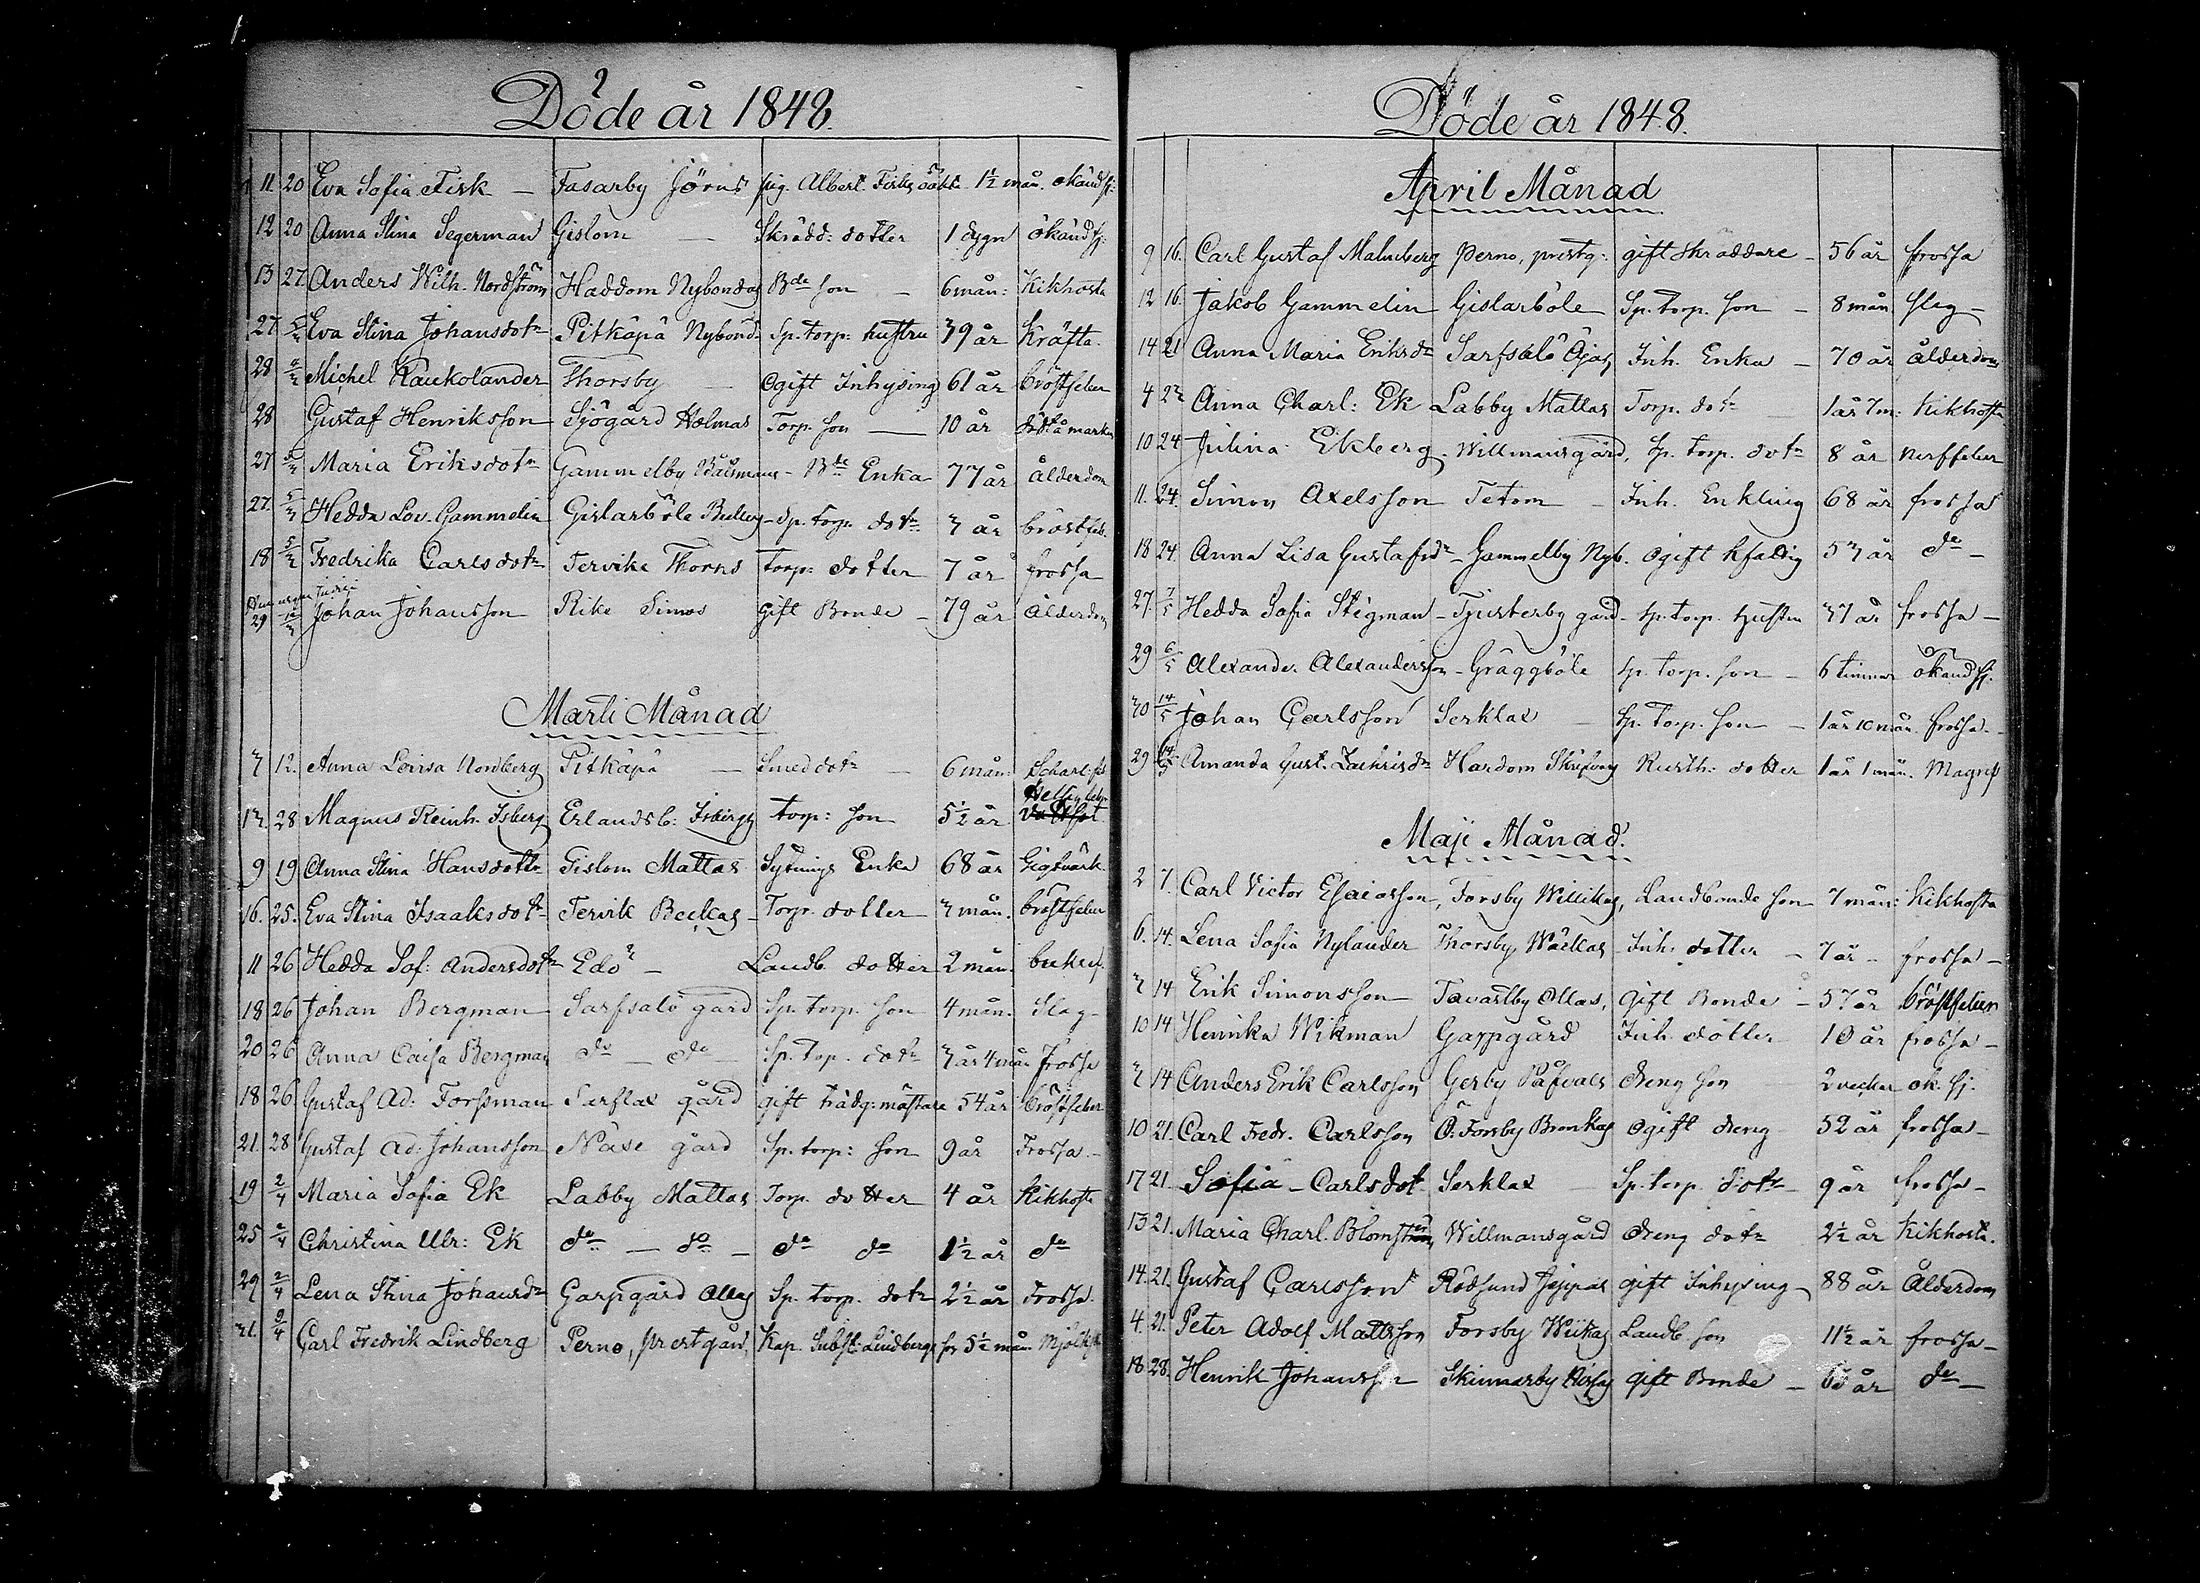 Döde år 1848.
11. 20 Eva Sofia Fisk — Fasarby Jörns sig. Albert Fisks dott. 1½ mån. okänd sj.
12 20 Anna Stina Segerman Gislom — Skrädd: dotter 1 dygn okänd sj.
13 27. Anders Wilh. Nordström Haddom Nybondas Bde son — 6 mån: Kikhosta
27. 5/3 Eva Stina Johansdotr Pitkäpä Nybond. Sp. torp: hustru 39 år Kräfta.
28 Michel Kaukolander Thorsby — Ogift Inhysing 61 år bröstfeber
28 Gustaf Henriksson Sjögård Holmas Torp. son — 10 år död å marken
27 5/3 Maria Eriksdotr Gammelby Båtsmans - Bde Enka 77 år Ålderdom
27. 5/3 Hedda Lov. Gammelin Gislarböle Sp. torp. dotr 3 år bröstfeb.
18 5/3 Fredrika Carlsdotr Tervike Thorns torp: dotter 7 år frossa
29 12/3 Johan Johansson Rike Simos Gift Bonde — 79 år Ålderdom
Marti Månad
3 12. Anna Lovisa Nordberg Pitkäpä — Smed dotr — 6 mån: Scharl. fb
13. 28 Magnus Reinh. Isberg Erlandsb: Isbergs torp: son 5½ år
9 19 Anna Stina Hansdottr Gislom Mattas Sytnings Enka 68 år Gigtvärk
16. 25. Eva Stina Isaaksdotr Tervik Beckas - Torp. dotter — 3 mån. bröstfeber
11 26 Hedda Sof: Andersdotr Edö — Landb. dotter 2 mån. bukref.
18 26 Johan Bergman Sarfsalö gård Sp. torp. son 4 mån. Slag -
20 26 Anna Caisa Bergman do — do — Sp. torp. dotr 3 år 4 mån frossa
18 26 Gustaf Ad: Forssman Sarflax gård gift trädg: mästare 54 år bröstfeber
21. 28 Gustaf Ad: Johansson Näse gård Sp. torp: son 9 år Frossa -
19 2/4 Maria Sofia Ek Labby Mattas Torp. dotter 4 år Kikhosta
25 2/4 Christina Ulr: Ek do — do — do do 1½ år do
29 2/4 Lena Stina Johansdr Garpgård Ollas Sp. torp. dotr 2½ år Frossa.
31. 9/4 Carl Fredrik Lindberg Perno, prestgård, Kap. Subst: Lindbergs sn 5½ mån.
Döde år 1848.
April Månad
9 16. Carl Gustaf Malmberg Perno, prestg: gift skräddare — 56 år frossa
12 16. Jakob Gammelin Gislarböle Sp. torp. son — 8 mån slag —
14 21 Anna Maria Eriksdr Sarfsalö Öjas, Inh. Enka — 70 år ålderdom
4 23 Anna Charl: Ek Labby Mattas Torp. dotr — 1 år 7 m: Kikhosta
10 24 Julina Ekberg - Willmansgård, Sp. torp. dotr 8 år nerffeber
11. 24. Simon Axelsson Tetom — Inh. Enkling 68 år frossa
18 24. Anna Lisa Gustafsdr Gammelby Nyb. ogift hfattig 53 år do —
27. 7/5 Hedda Sofia Stigman — Tjusterby gård - Sp. torp. hustru 37 år frossa —
29 6/5 Alexander Alexandersson - Gräggböle Sp. torp. son — 6 timmar okänd sj.
30 14/5 Johan Carlsson Serklax — Sp. torp. son — 1 år 10 mån. frossa -
29 14/5 Amanda Gust. Zachrisdr Hardom Skrifvars Rusth: dotter 1 år 1 mån.
Maji Månad.
2 7. Carl Victor Esaiasson, Forsby Willikas, Landbonde son 7 mån: Kikhosta
6. 14. Lena Sofia Nylander Thorsby Inh. dotter — 7 år - frossa —
3 14 Erik Simonsson — Tavastby Ollas, gift Bonde — 57 år bröstfeber
10 14 Henrika Wikman Garpgård Inh. dotter 10 år frossa —
3 14 Anders Erik Carlsson, Gerby Påfvals dreng son 2 veckor ok. sj.
10 21. Carl Fredr. Carlsson Ö: Forsby Bronkas ogift dreng 52 år frossa —
17 21 Sofia — Carlsdot. Serklax — Sp. torp dotr — 9 år frossa —
13 21. Maria Charl. Blomström, Willmansgård dreng dotr 2½ år Kikhosta.
14. 21. Gustaf Carlsson Rödsund Jeppas gift Inhysing — 88 år Ålderdom
4. 21. Peter Adolf Mattsson Forsby Wiikas Landb son 11½ år frossa —
18. 28. Henrik Johansson Skinnarby gift Bonde — 65 år do —